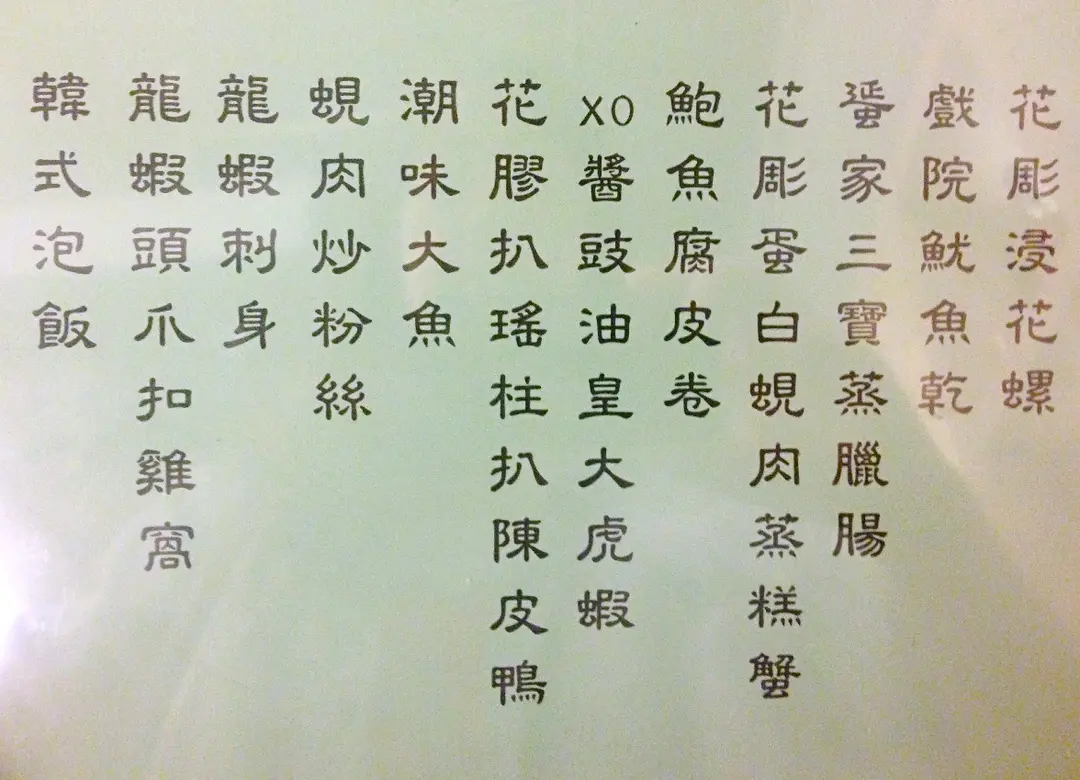 花彫浸花螺
戲院魷魚乾
蜑家三寶蒸臘腸
花彫蛋白蜆肉蒸糕蟹
鮑魚腐皮卷
XO醬豉油皇大虎蝦
花膠扒瑤柱扒陳皮鴨
潮味大魚
蜆肉炒粉絲
龍蝦刺身
龍蝦頭爪扣雞窩
韓式泡飯